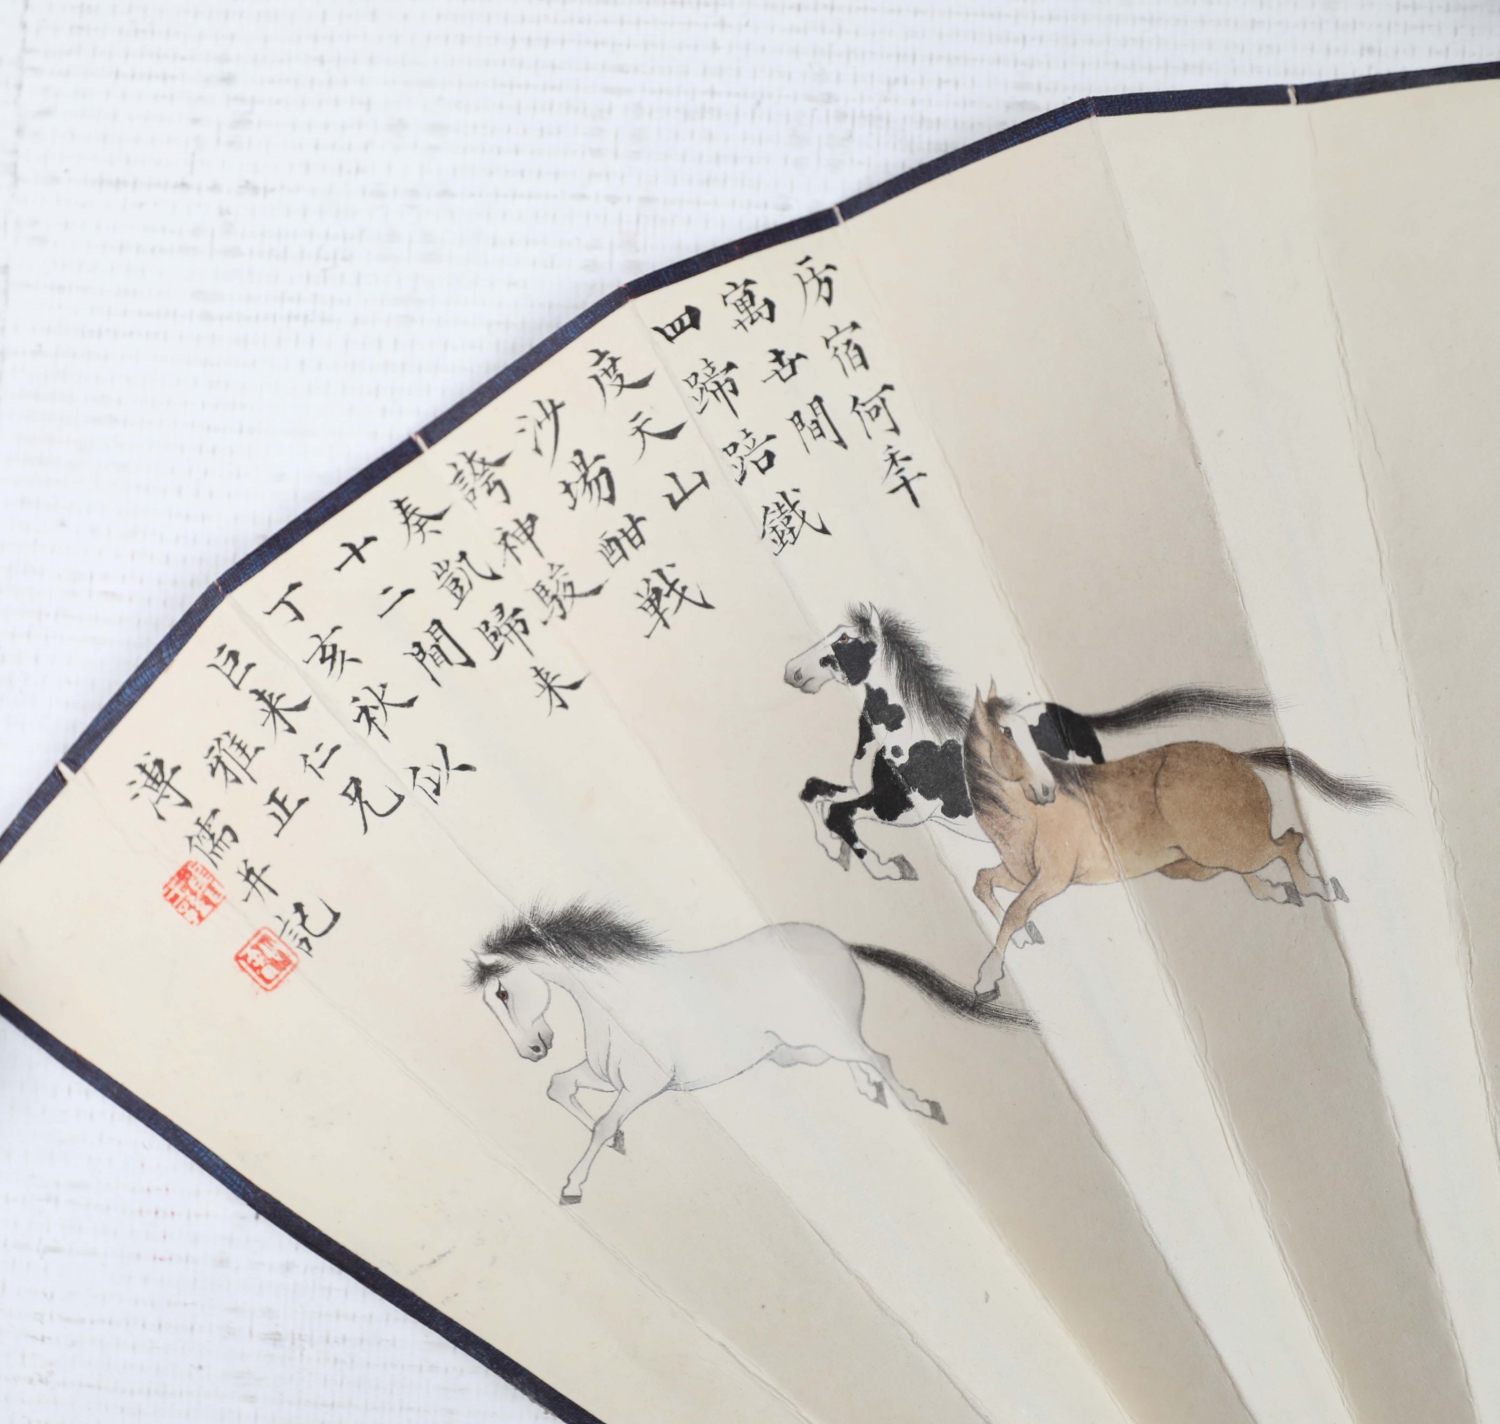 房宿何秊
寓世間
四蹄踣鐵
度天山
沙場酣戦
誇神駿
奏凱歸来
十二閒
丁亥秋似
巨来仁兄
雅正
溥儒并記